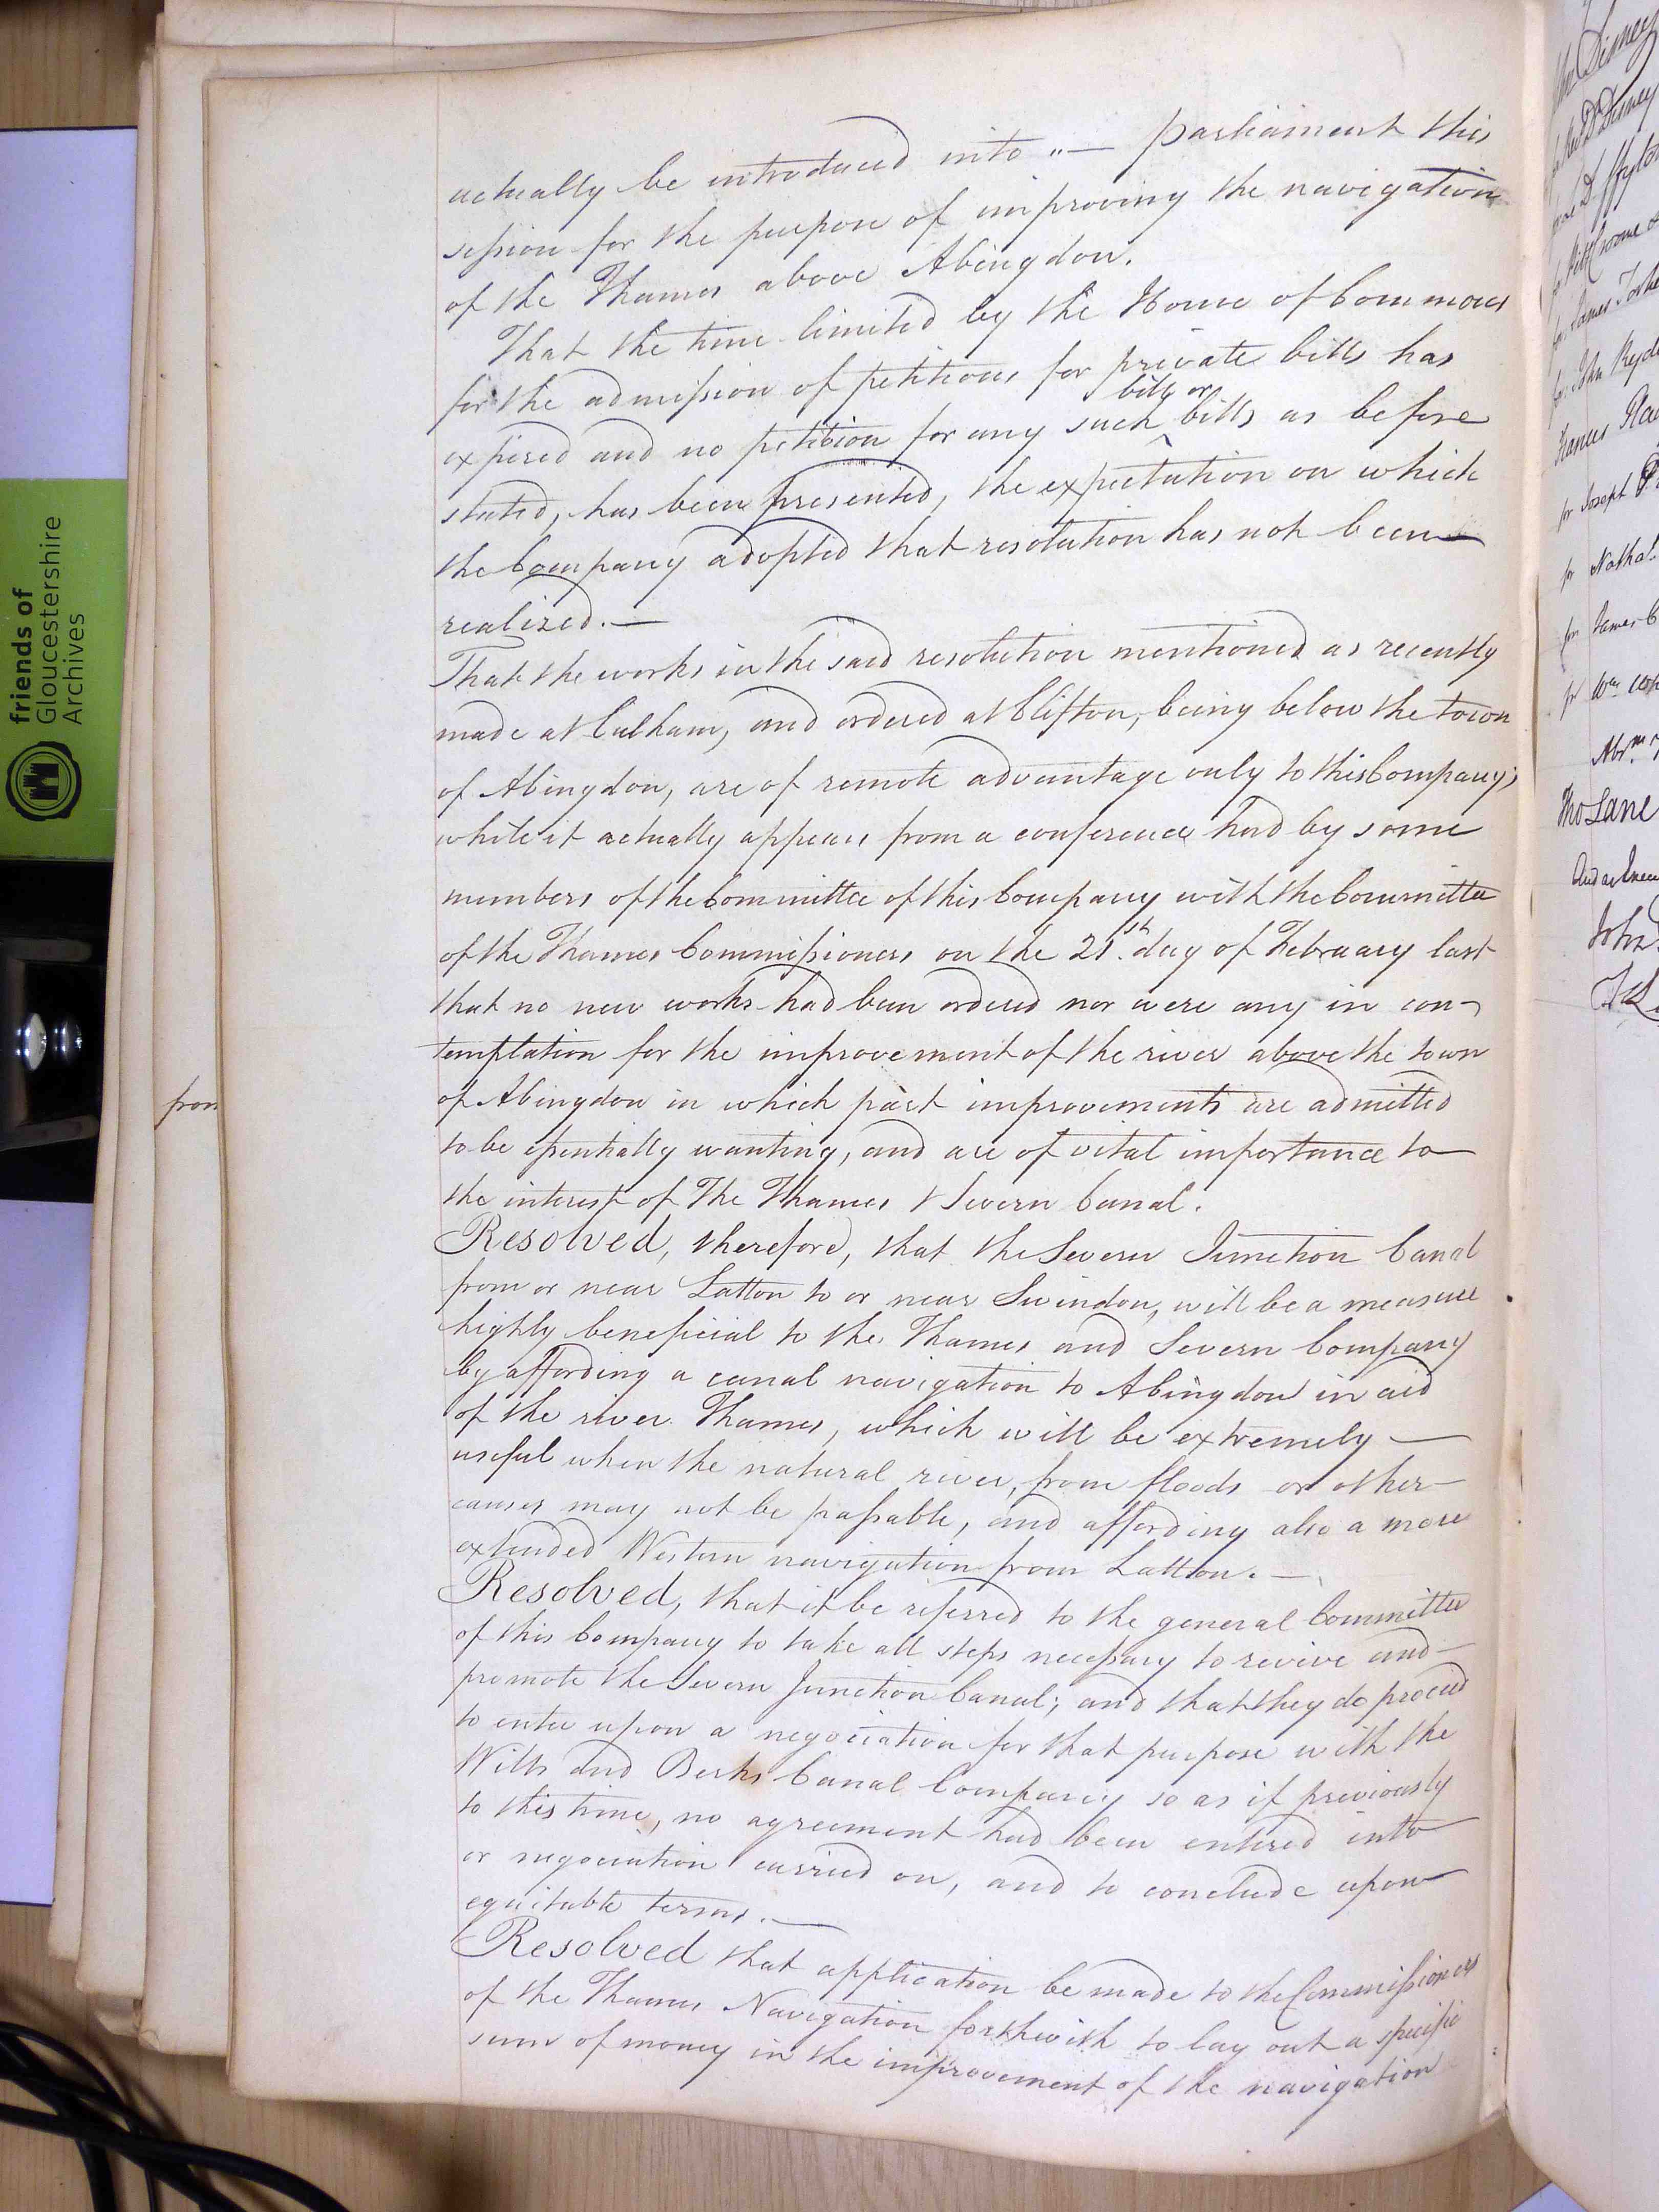 actually be introduced into "— parliament this
session for the purpose of improving the navigation
of the Thames above Abingdon.
That the time limited by the House of Commons
for the admission of petitions for private bills has
expired and no petition for any such bill, or bills as before
stated, has been presented, the expectation on which
the Company adopted that resolution has not been—
realized.—
That the works in the said resolution mentioned as recently
made at Culham, and ordered at Clifton, being below the town
of Abingdon, are of remote advantage only to this Company;
while it actually appears from a conference had by some
members of the Committee of this Company with the Committee
of the Thames Commissioners on the 21.st day of February last
that no new works had been ordered nor were any in con-
templation for the improvement of the river above the town
of Abingdon in which part improvements are admitted
to be essentially wanting, and are of vital importance to—
the interest of The Thames & Severn Canal.
Resolved, therefore, that the Severn Junction Canal
from or near Latton to or near Swindon, will be a measure
highly beneficial to the Thames and Severn Company
by affording a canal navigation to Abingdon in aid
of the river Thames, which will be extremely—
useful when the natural river, from floods or other—
causes may not be passable, and affording also a more
extended Western navigation from Latton.—
Resolved, that it be referred to the general Committee
of this Company to take all steps necessary to revive and—
promote the Severn Junction Canal; and that they do proceed
to enter upon a negociation for that purpose with the
Wilts and Berks Canal Company so as if previously
to this time, no agreement had been entered into
or negociation carried on, and to conclude upon—
equitable terms.—
Resolved that application be made to the Commissioners
of the Thames Navigation forthwith to lay out a specific
sum of money in the improvement of the navigation
from
friends of
Gloucestershire
Archives
the Disney
Disney
James
John Ryde
James
for Joseph
for Nathal.
for James C
for Wm
Abrm
Tho Lane
John